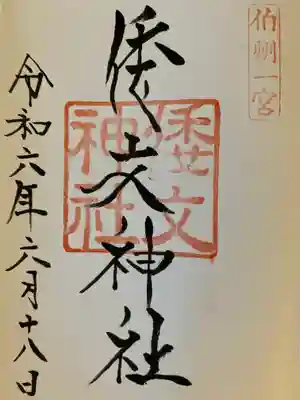 伯州一宮
倭文神社
倭文神社
令和六年六月十八日